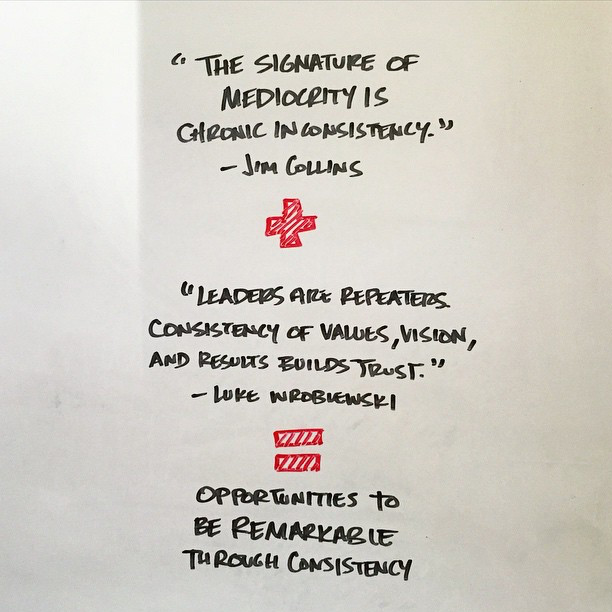 “THE SIGNATURE OF
MEDIOCRITY IS
CHRONIC INCONSISTENCY.”
– JIM COLLINS
+
“LEADERS ARE REPEATERS.
CONSISTENCY OF VALUES, VISION,
AND RESULTS BUILDS TRUST.”
– LUKE WROBLEWSKI
=
OPPORTUNITIES TO
BE REMARKABLE
THROUGH CONSISTENCY